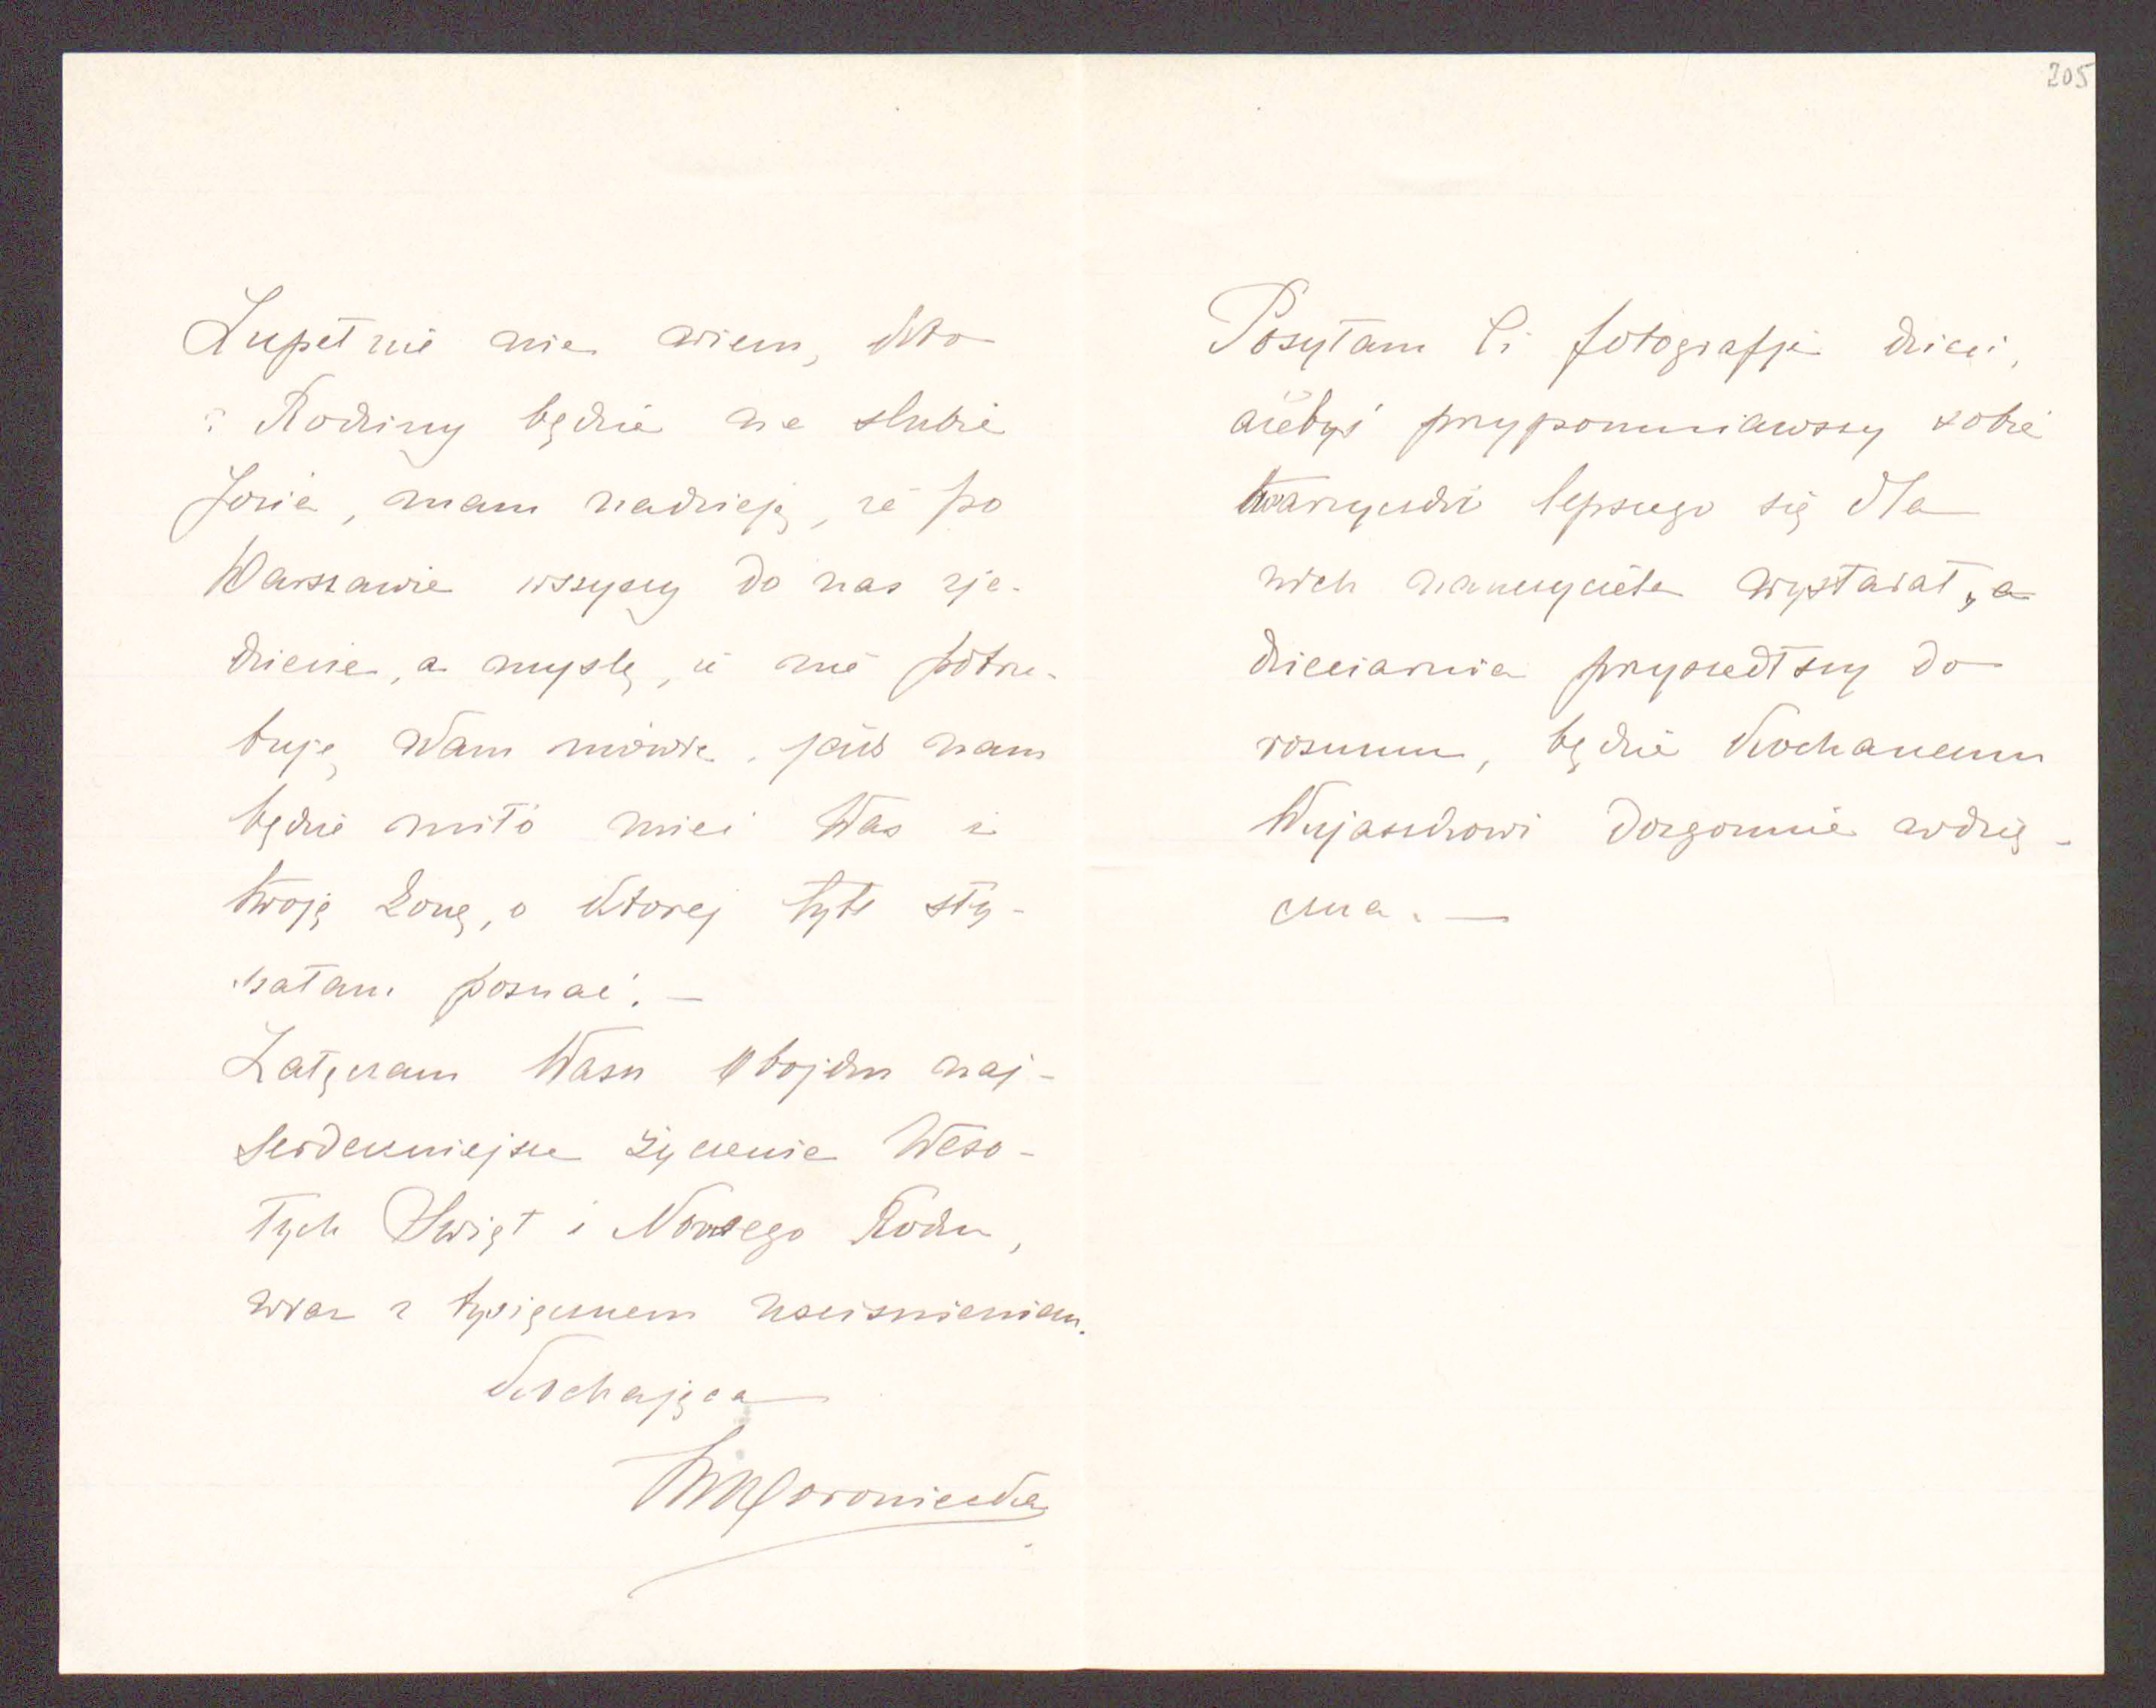 Zupełnie nie wiem, kto
z Rodziny będzie na slubie
Józia, mam nadzieję, że po
Warszawie wszyscy do nas zje-
dziecie, a myslę, iż nie potrze-
buję Wam mówić, jak nam
będzie miło mieć Was i
twoję Żonę, o ktorej tyle sły-
szałam poznać. —
Załączam Wam Obojdu naj-
serdeczniejsze życzenia Weso-
łych Swiąt i Nowego Roku,
wraz z tysiącznem usciśnieniem.
Kochająca
MWoroniecka
205
Posyłam Ci fotografje dzieci,
ażebyś przypomniawszy sobie
twarzyczki lepszego się dla
nich nauczyciela wystarał, a
dzieciarnia przyszedłszy do
rozumu, będzie Kochanemu
Wujaszkowi dozgonnie wdzię-
czna. —